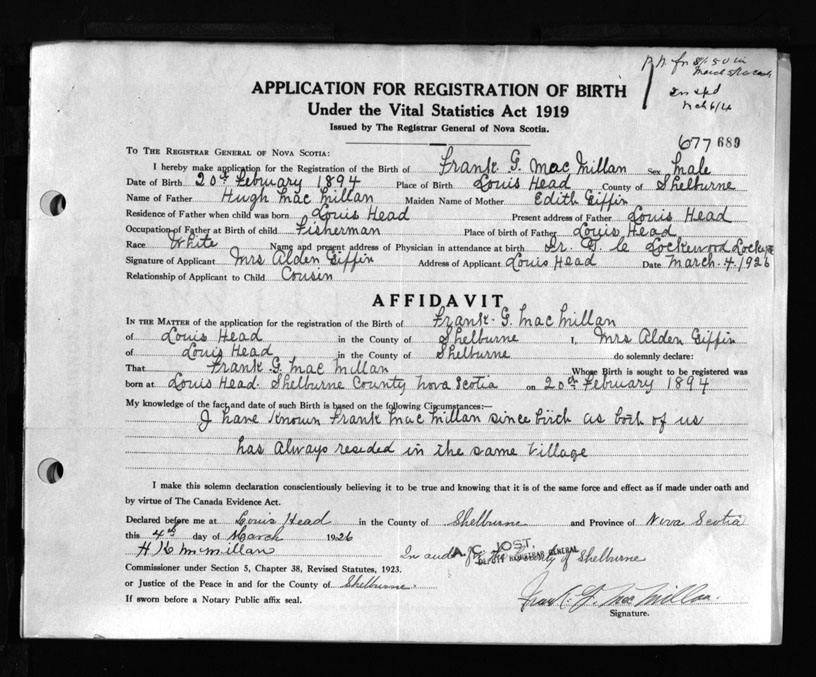 APPLICATION FOR REGISTRATION OF BIRTH
Under the Vital Statistics Act 1919
Issued by The Registrar General of Nova Scotia.
677 689
TO THE REGISTRAR GENERAL OF NOVA SCOTIA:
I hereby make application for the Registration of the Birth of Frank G. Mac Millan Sex Male
Date of Birth 20th February 1894 Place of Birth Louis Head County of Shelburne
Name of Father Hugh Mac Millan Maiden Name of Mother Edith Giffin
Residence of Father when child was born Louis Head Present address of Father Louis Head
Occupation of Father at Birth of child Fisherman Place of birth of Father Louis Head
Race White Name and present address of Physician in attendance at birth Dr. Lockewood
Signature of Applicant Mrs Alden Giffin Address of Applicant Louis Head Date March. 4, 1926
Relationship of Applicant to Child Cousin
AFFIDAVIT
IN THE MATTER of the application for the registration of the Birth of Frank. G. Mac Millan
of Louis Head in the County of Shelburne I, Mrs Alden Giffin
of Louis Head in the County of Shelburne do solemnly declare:
That Frank G. Mac Millan Whose Birth is sought to be registered was
born at Louis Head. Shelburne County Nova Scotia on 20th February 1894
My knowledge of the fact and date of such Birth is based on the following Circumstances:—
I have Known Frank Mac Millan since birth as both of us
has Always resided in the same Village
I make this solemn declaration conscientiously believing it to be true and knowing that it is of the same force and effect as if made under oath and
by virtue of The Canada Evidence Act.
Declared before me at Louis Head in the County of Shelburne and Province of Nova Scotia
this 4th day of March 1926
H K McMillan In and for the County of Shelburne
A. C. JOST,
DEPUTY REGISTRAR GENERAL
Commissioner under Section 5, Chapter 38, Revised Statutes, 1923.
or Justice of the Peace in and for the County of Shelburne.
If sworn before a Notary Public affix seal.
Frank. G. Mac Millan.
Signature.